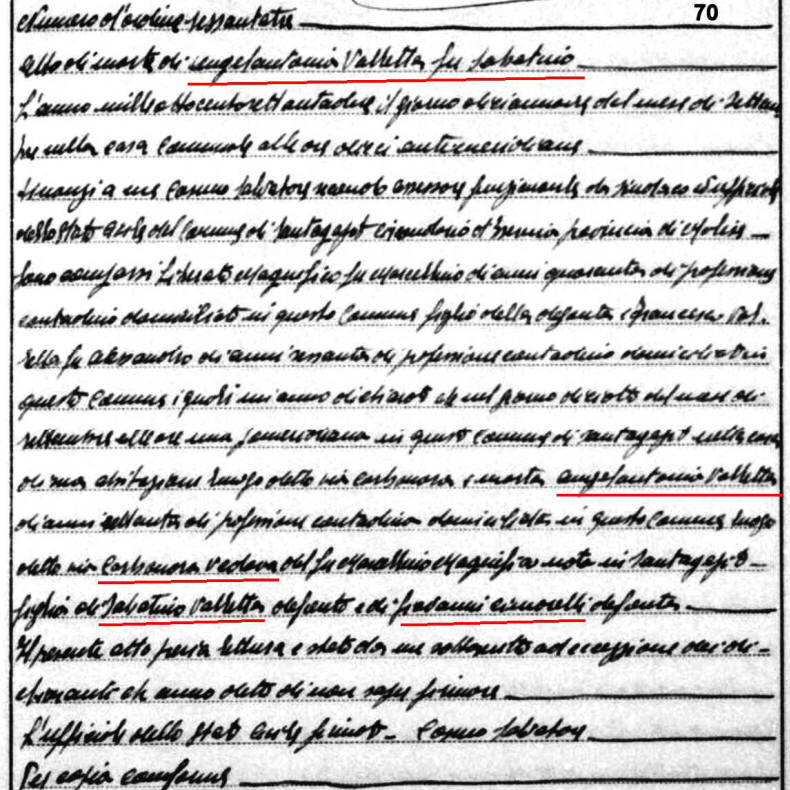 70
Numero d'ordine sessantatre
Atto di morte di Angelantonia Valletta fu Sabatino
L'anno milleottocentosettantadue il giorno diciannove del mese di Settem
bre nella casa Comunale alle ore dieci antimeridiane
Innanzi a me Cosmo Salvatore assessore funzionante da sindaco ed ufficiale
dello stato Civile del Comune di Santagapito circondario d'Isernia provincia di Molise
sono comparsi Liberato Magnifico fu Marcellino di anni quaranta di professione
contadino domiciliato in questo Comune figlio della defunta e Francesco Val.
letta fu Alessandro di anni sessanta di professione contadino domiciliato in
questo Comune i quali mi anno dichiarato che nel giorno diciotto del mese di
settembre alle ore una pomeridiana in questo Comune di Santagapito nella casa
di sua abitazione luogo detto via Carbonara è morta Angelantonia Valletta
di anni settanta di professione contadina domiciliata in questo Comune luogo
detto via Carbonara Vedova del fu Marcellino Magnifico nata in Santagapito
figlia di Sabatino Valletta defunto e di Cimorelli defunta
Il presente atto previa lettura è stato da me sottoscritto ad eccezione dei di-
chiaranti che anno detto di non saper firmare
L'ufficiale dello Stato Civile firmato - Cosmo Salvatore
Per copia conforme